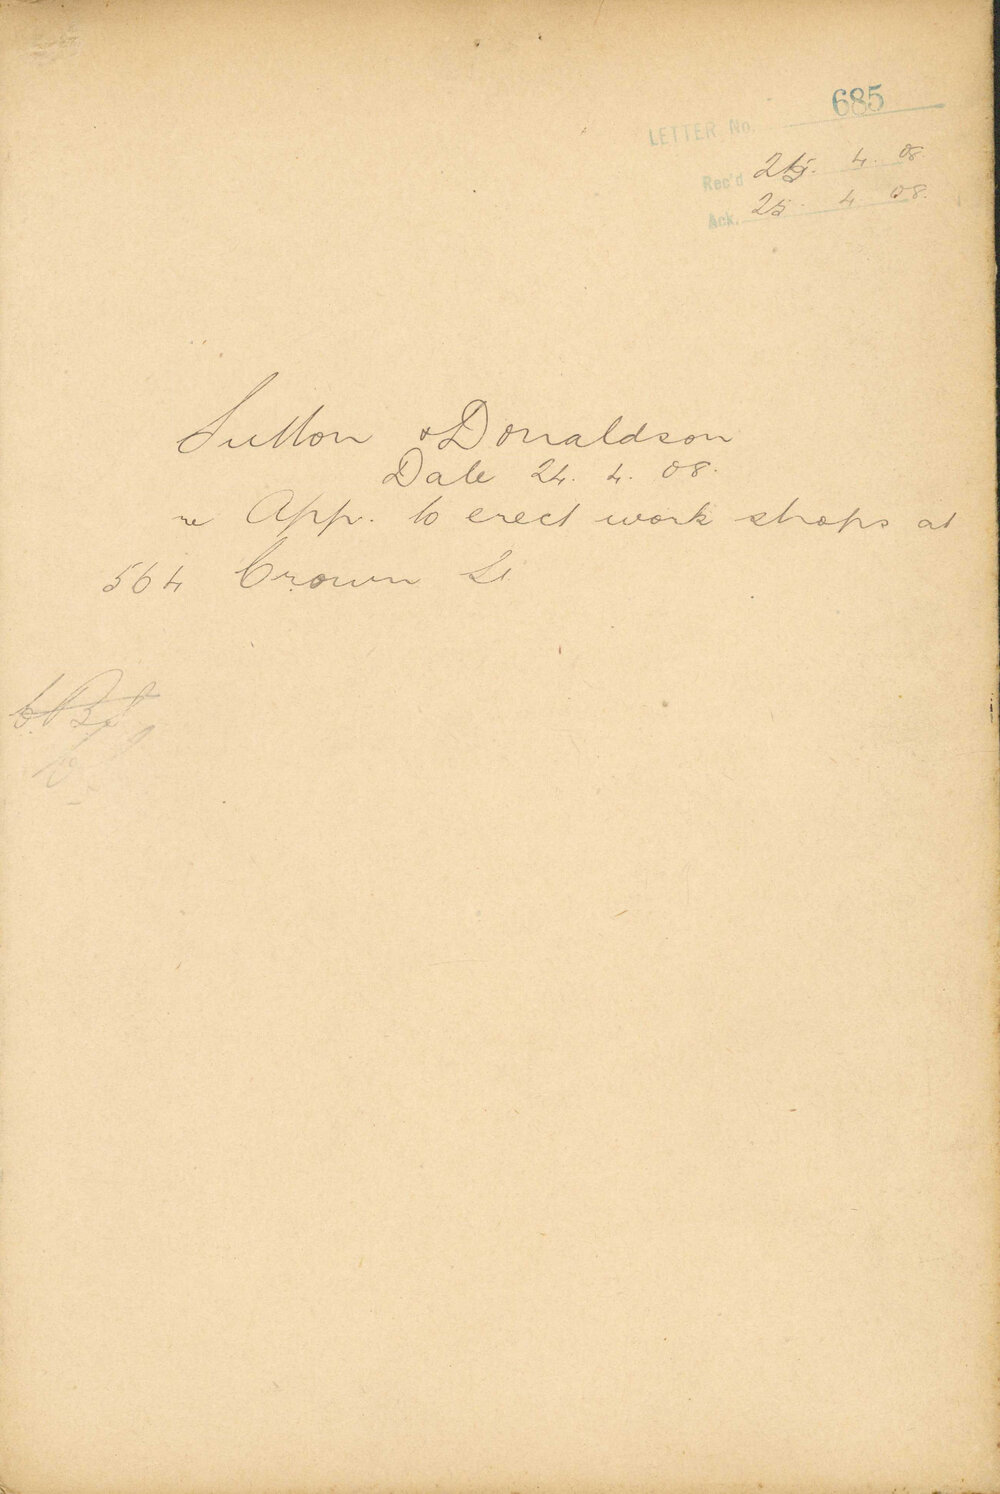 685
LETTER No.
Rec'd 25. 4. 08.
Ack. 25. 4 08.
Sutton & Donaldson
Date 24. 4. 08.
re App. to erect work shops at
564 Crown St